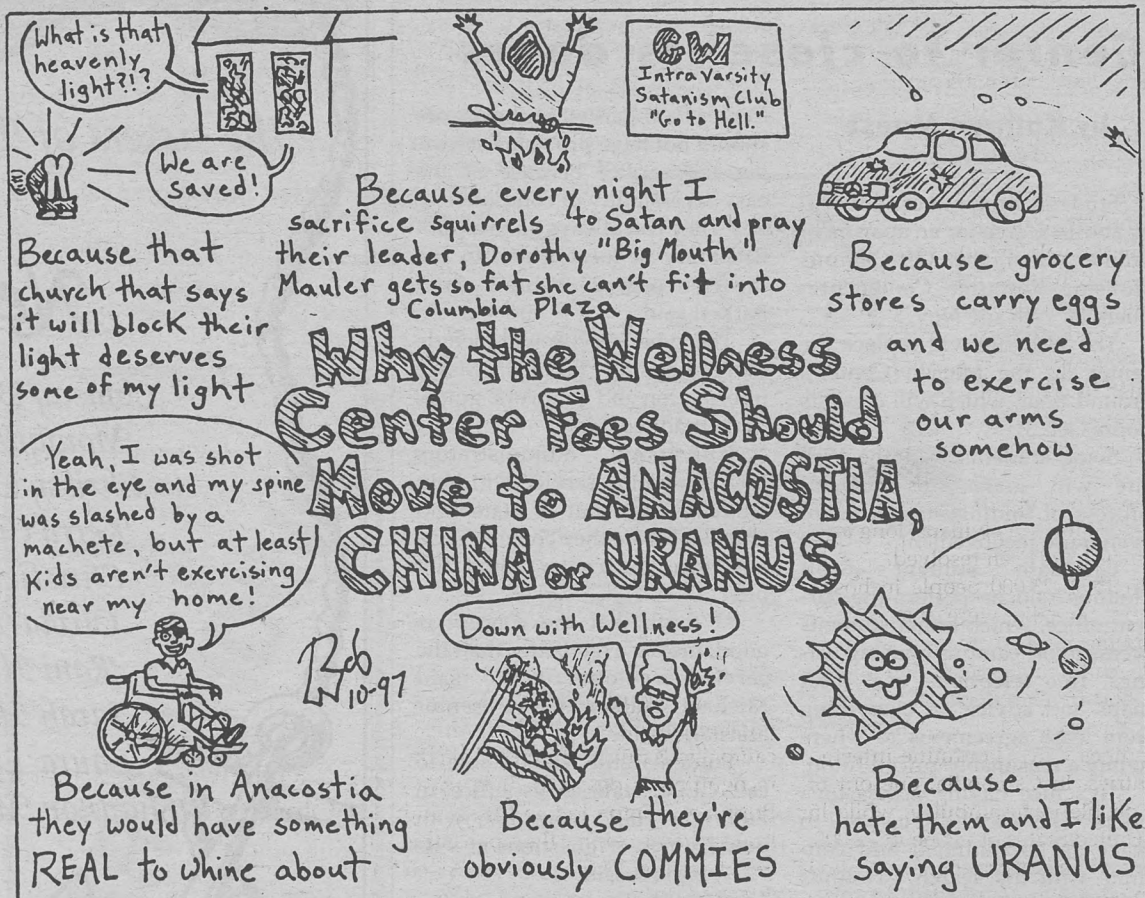 What is that
heavenly
light?!?
We are
saved!
Because that
church that says
it will block their
light deserves
some of my light
GW
Intra varsity
Satanism Club
"Go to Hell."
Because every night I
sacrifice squirrels to Satan and pray
their leader, Dorothy "Big Mouth"
Mauler gets so fat she can't fit into
Columbia Plaza
Because grocery
stores carry eggs
and we need
to exercise
our arms
somehow
Why the Wellness
Center Foes Should
Move to ANACOSTIA,
CHINA or URANUS
Yeah, I was shot
in the eye and my spine
was slashed by a
machete, but at least
Kids aren't exercising
near my home!
Because in Anacostia
they would have something
REAL to whine about
Rob
10-97
Down with Wellness!
Because they're
obviously COMMIES
Because I
hate them and I like
saying URANUS